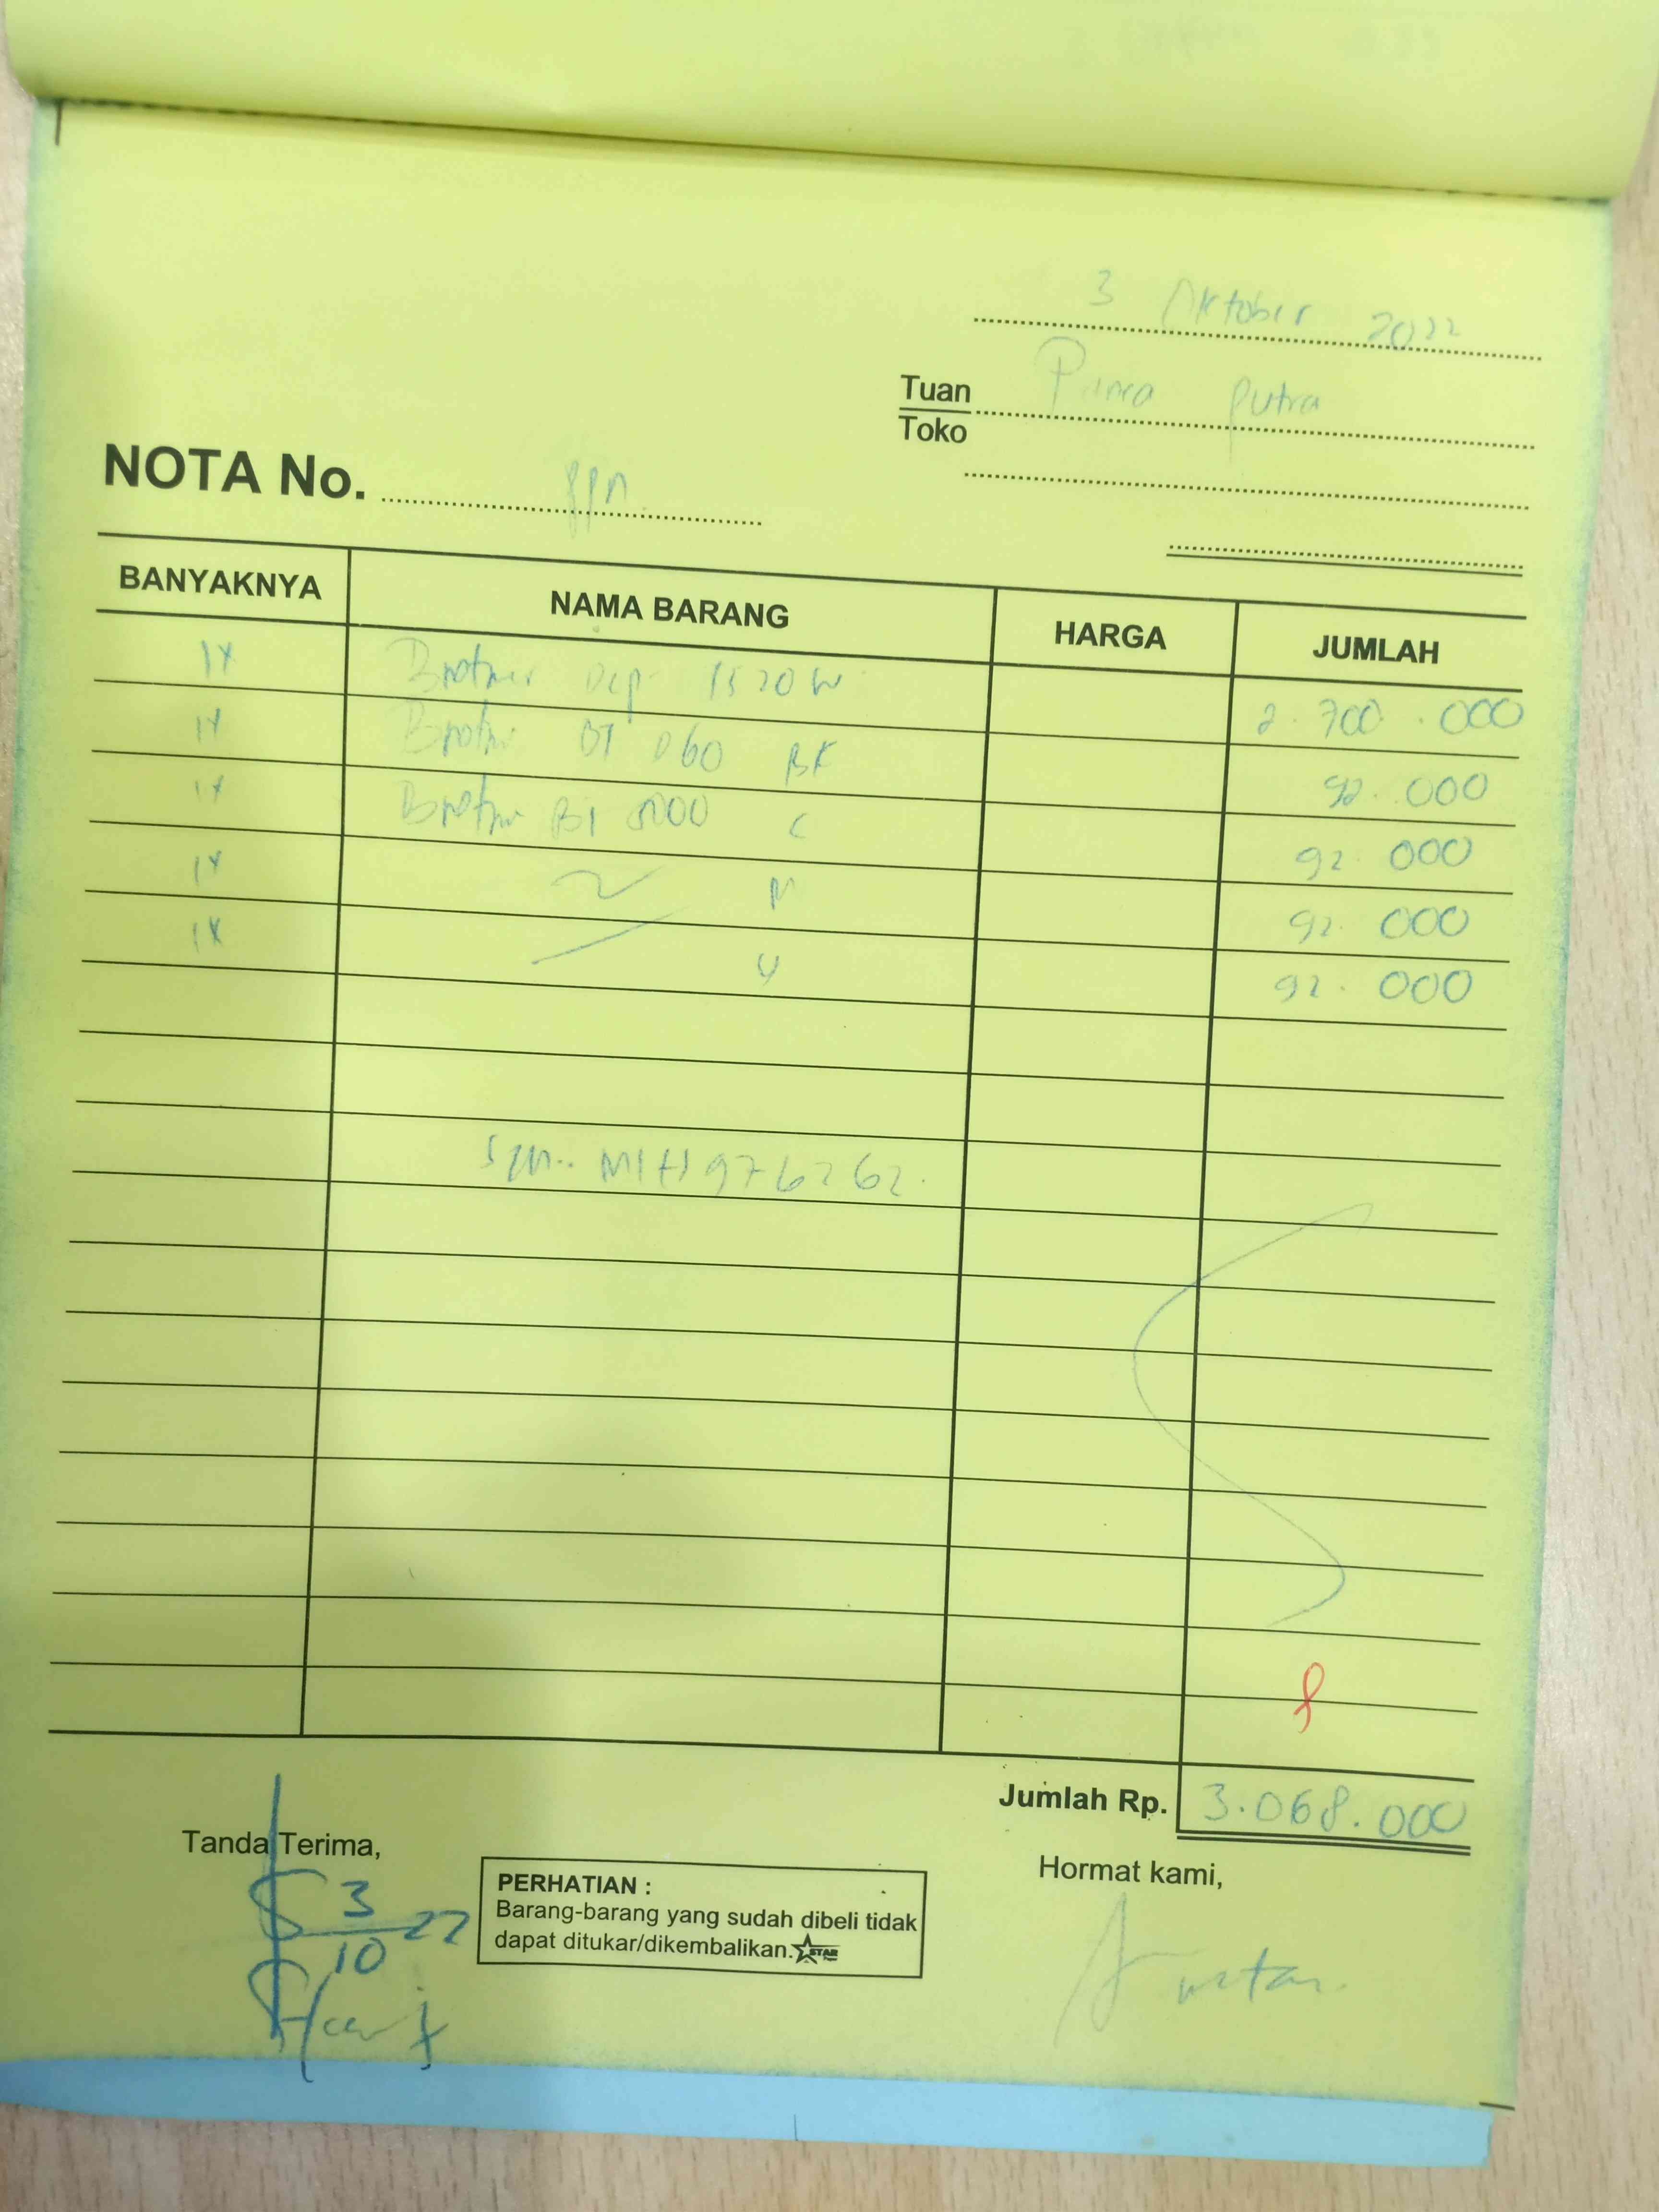 3 Oktober 2022
Tuan
Toko
Putra
NOTA No. ppn
BANYAKNYA NAMA BARANG HARGA JUMLAH
1X Brother Dcp 1520 W 2.700.000
1X Brother BT D60 BK 92.000
1X Brother BT 5000 C 92.000
1X M 92.000
1X Y 92.000
Jumlah Rp. 3.068.000
Tanda Terima,
3
10 22
PERHATIAN :
Barang-barang yang sudah dibeli tidak
dapat ditukar/dikembalikan. STAR
Hormat kami,